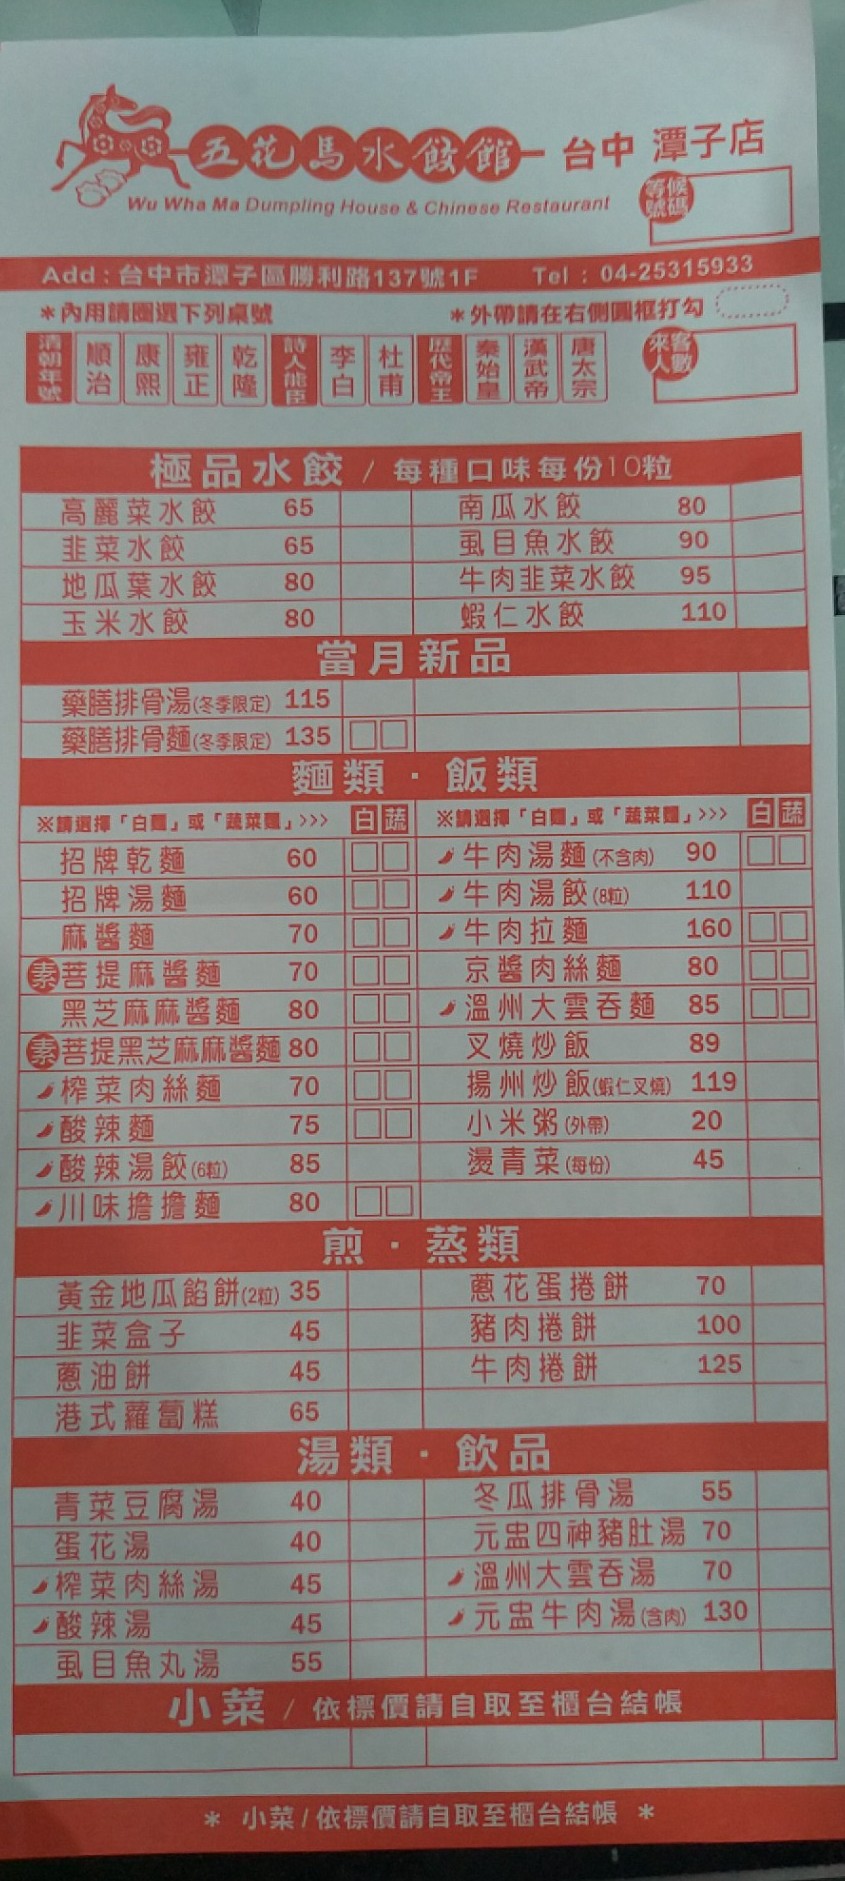 五花馬水餃館 台中 潭子店
Wu Wha Ma Dumpling House & Chinese Restaurant
等候號碼
Add : 台中市潭子區勝利路137號1F Tel : 04-25315933
*內用請圈選下列桌號 *外帶請在右側圓框打勾
清朝年號 順治 康熙 雍正 乾隆 詩人能臣 李白 杜甫 歷代帝王 秦始皇 漢武帝 唐太宗 來客人數
極品水餃 / 每種口味每份10粒
高麗菜水餃 65 南瓜水餃 80
韭菜水餃 65 虱目魚水餃 90
地瓜葉水餃 80 牛肉韭菜水餃 95
玉米水餃 80 蝦仁水餃 110
當月新品
藥膳排骨湯(冬季限定) 115
藥膳排骨麵(冬季限定) 135 □□
麵類 · 飯類
※請選擇「白麵」或「蔬菜麵」>>> 白 蔬 ※請選擇「白麵」或「蔬菜麵」>>> 白 蔬
招牌乾麵 60 □□ 牛肉湯麵(不含肉) 90 □□
招牌湯麵 60 □□ 牛肉湯餃(8粒) 110
麻醬麵 70 □□ 牛肉拉麵 160 □□
素 菩提麻醬麵 70 □□ 京醬肉絲麵 80 □□
黑芝麻麻醬麵 80 □□ 溫州大雲吞麵 85 □□
素 菩提黑芝麻麻醬麵 80 □□ 叉燒炒飯 89
榨菜肉絲麵 70 □□ 揚州炒飯(蝦仁叉燒) 119
酸辣麵 75 □□ 小米粥(外帶) 20
酸辣湯餃(6粒) 85 燙青菜(每份) 45
川味擔擔麵 80 □□
煎 · 蒸類
黃金地瓜餡餅(2粒) 35 蔥花蛋捲餅 70
韭菜盒子 45 豬肉捲餅 100
蔥油餅 45 牛肉捲餅 125
港式蘿蔔糕 65
湯類 · 飲品
青菜豆腐湯 40 冬瓜排骨湯 55
蛋花湯 40 元盅四神豬肚湯 70
榨菜肉絲湯 45 溫州大雲吞湯 70
酸辣湯 45 元盅牛肉湯(含肉) 130
虱目魚丸湯 55
小菜 / 依標價請自取至櫃台結帳
* 小菜/依標價請自取至櫃台結帳 *